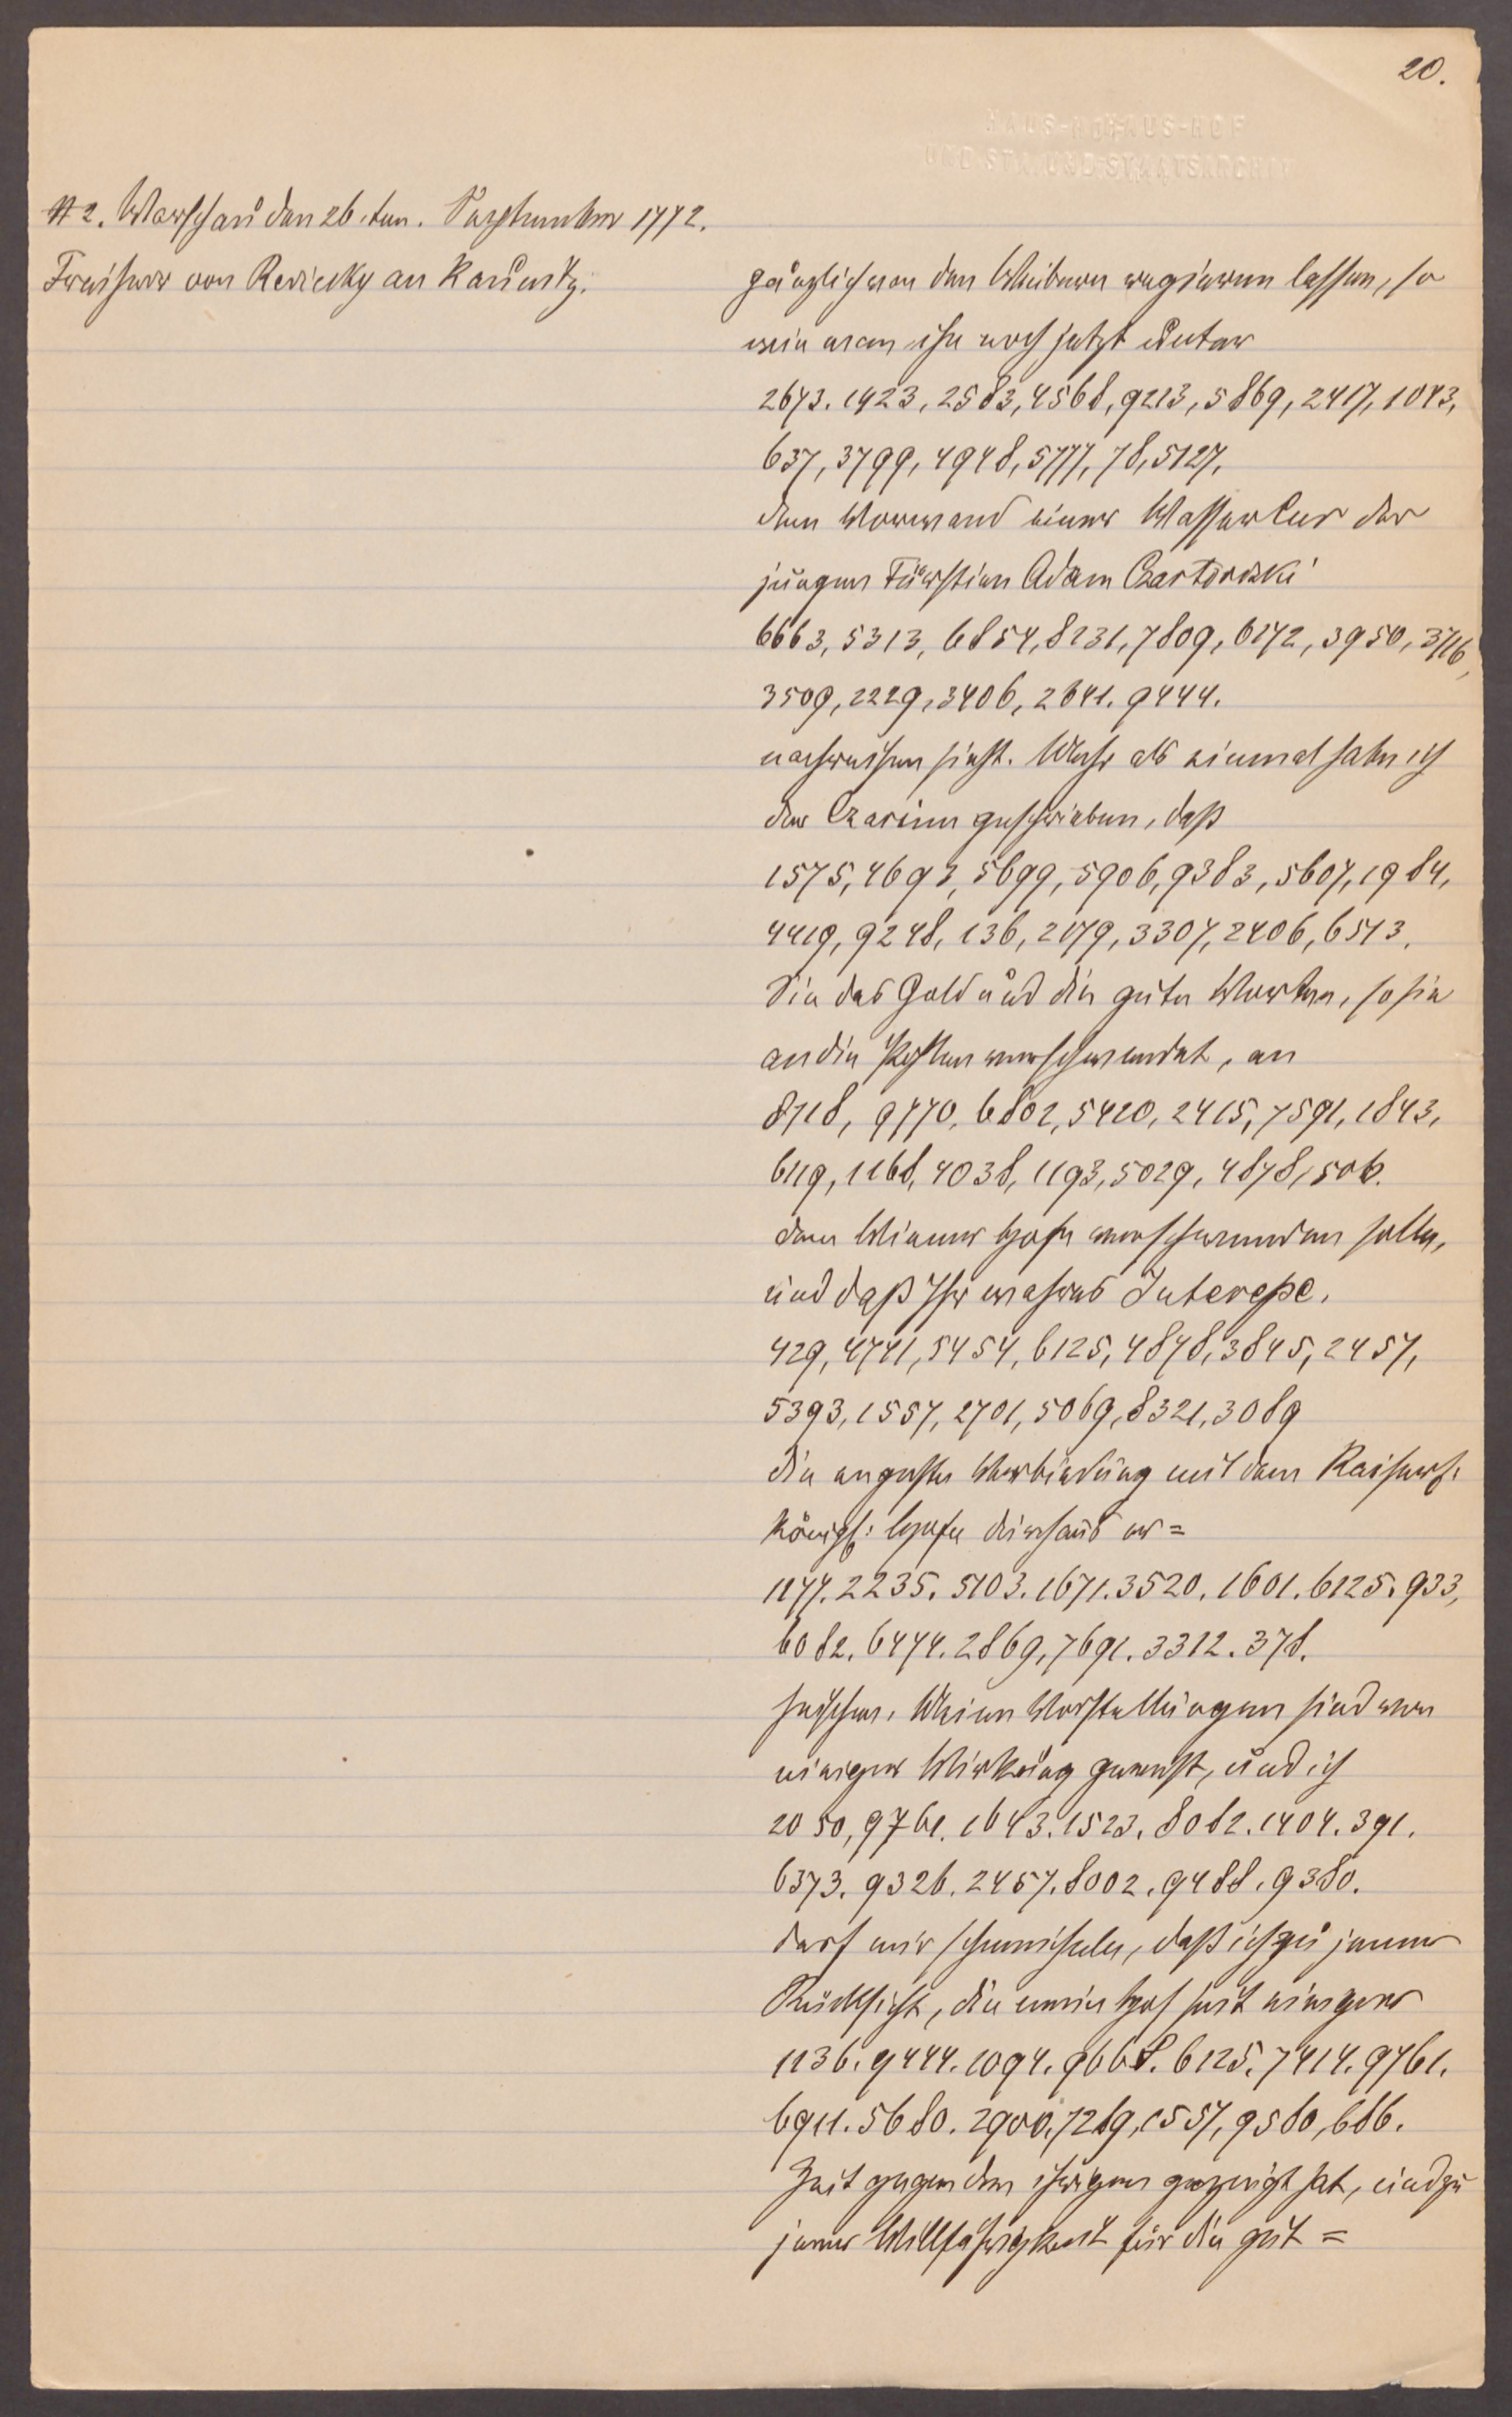 20.
HAUS-HOF
UND STAATSARCHIV
# 2. Warschau den 26. ten. September 1772.
Freiherr von Reviczky an Kaunitz.
gänzlich von den Weibern regieren lassen, so
wie man ihn noch jetzt unter
2673. 1923, 2583, 4568, 9213, 5869, 2417, 1043,
637, 3799, 4948, 5777, 78, 5127,
dem Vorwand einer Wasser Cur der
jungen Fürstien Adam Czartoriski
6663, 5313, 6854, 8231, 7809, 6172, 3950, 3716,
3509, 2229, 3406, 2641. 9444.
nachreisen sieht. Mehr als einmal habe ich
der Czarinn geschrieben, daß
1575, 4693, 5699, 5906, 9383, 5607, 1984,
4419, 9248, 136, 2179, 3307, 2406, 6573.
Sie das Gold und die guten Worten, so sie
an die verschwendet, an
8718, 9770, 6802, 5420, 2415, 7591, 1843,
6119, 1168, 4038, 1193, 5029, 4878, 506.
dem Wiener Hofe verschwenden solle,
und daß Ihr wahres Interesse.
429, 4741, 5454, 6125, 4878, 3845, 2457,
5393, 1557, 2701, 5069, 8321, 3089
die engste Verbindung mit dem Kaiserl.
Königl: Hofe durchaus er=
1177. 2235. 5103. 1671. 3520. 1601. 6125. 933,
6082. 6474. 2869, 7691. 3312. 378.
heischen. Meine Vorstellungen sind von
einiger Wirkung gewest, und ich
2050, 9761. 1643. 1523. 8082. 1404. 391.
6373. 9326. 2457. 8002. 9488. 9380.
darf mir schmeicheln, daß ich zu jener
Rücksicht, die mein Hof seit einiger
1136. 9444. 1094. 9668. 6125. 7414. 9761.
6911. 5680. 2900, 7289, 1557, 9580, 686.
Zeit gegen den ihrigen gezeigt hat, und zu
jener Willfährigkeit für die gut =